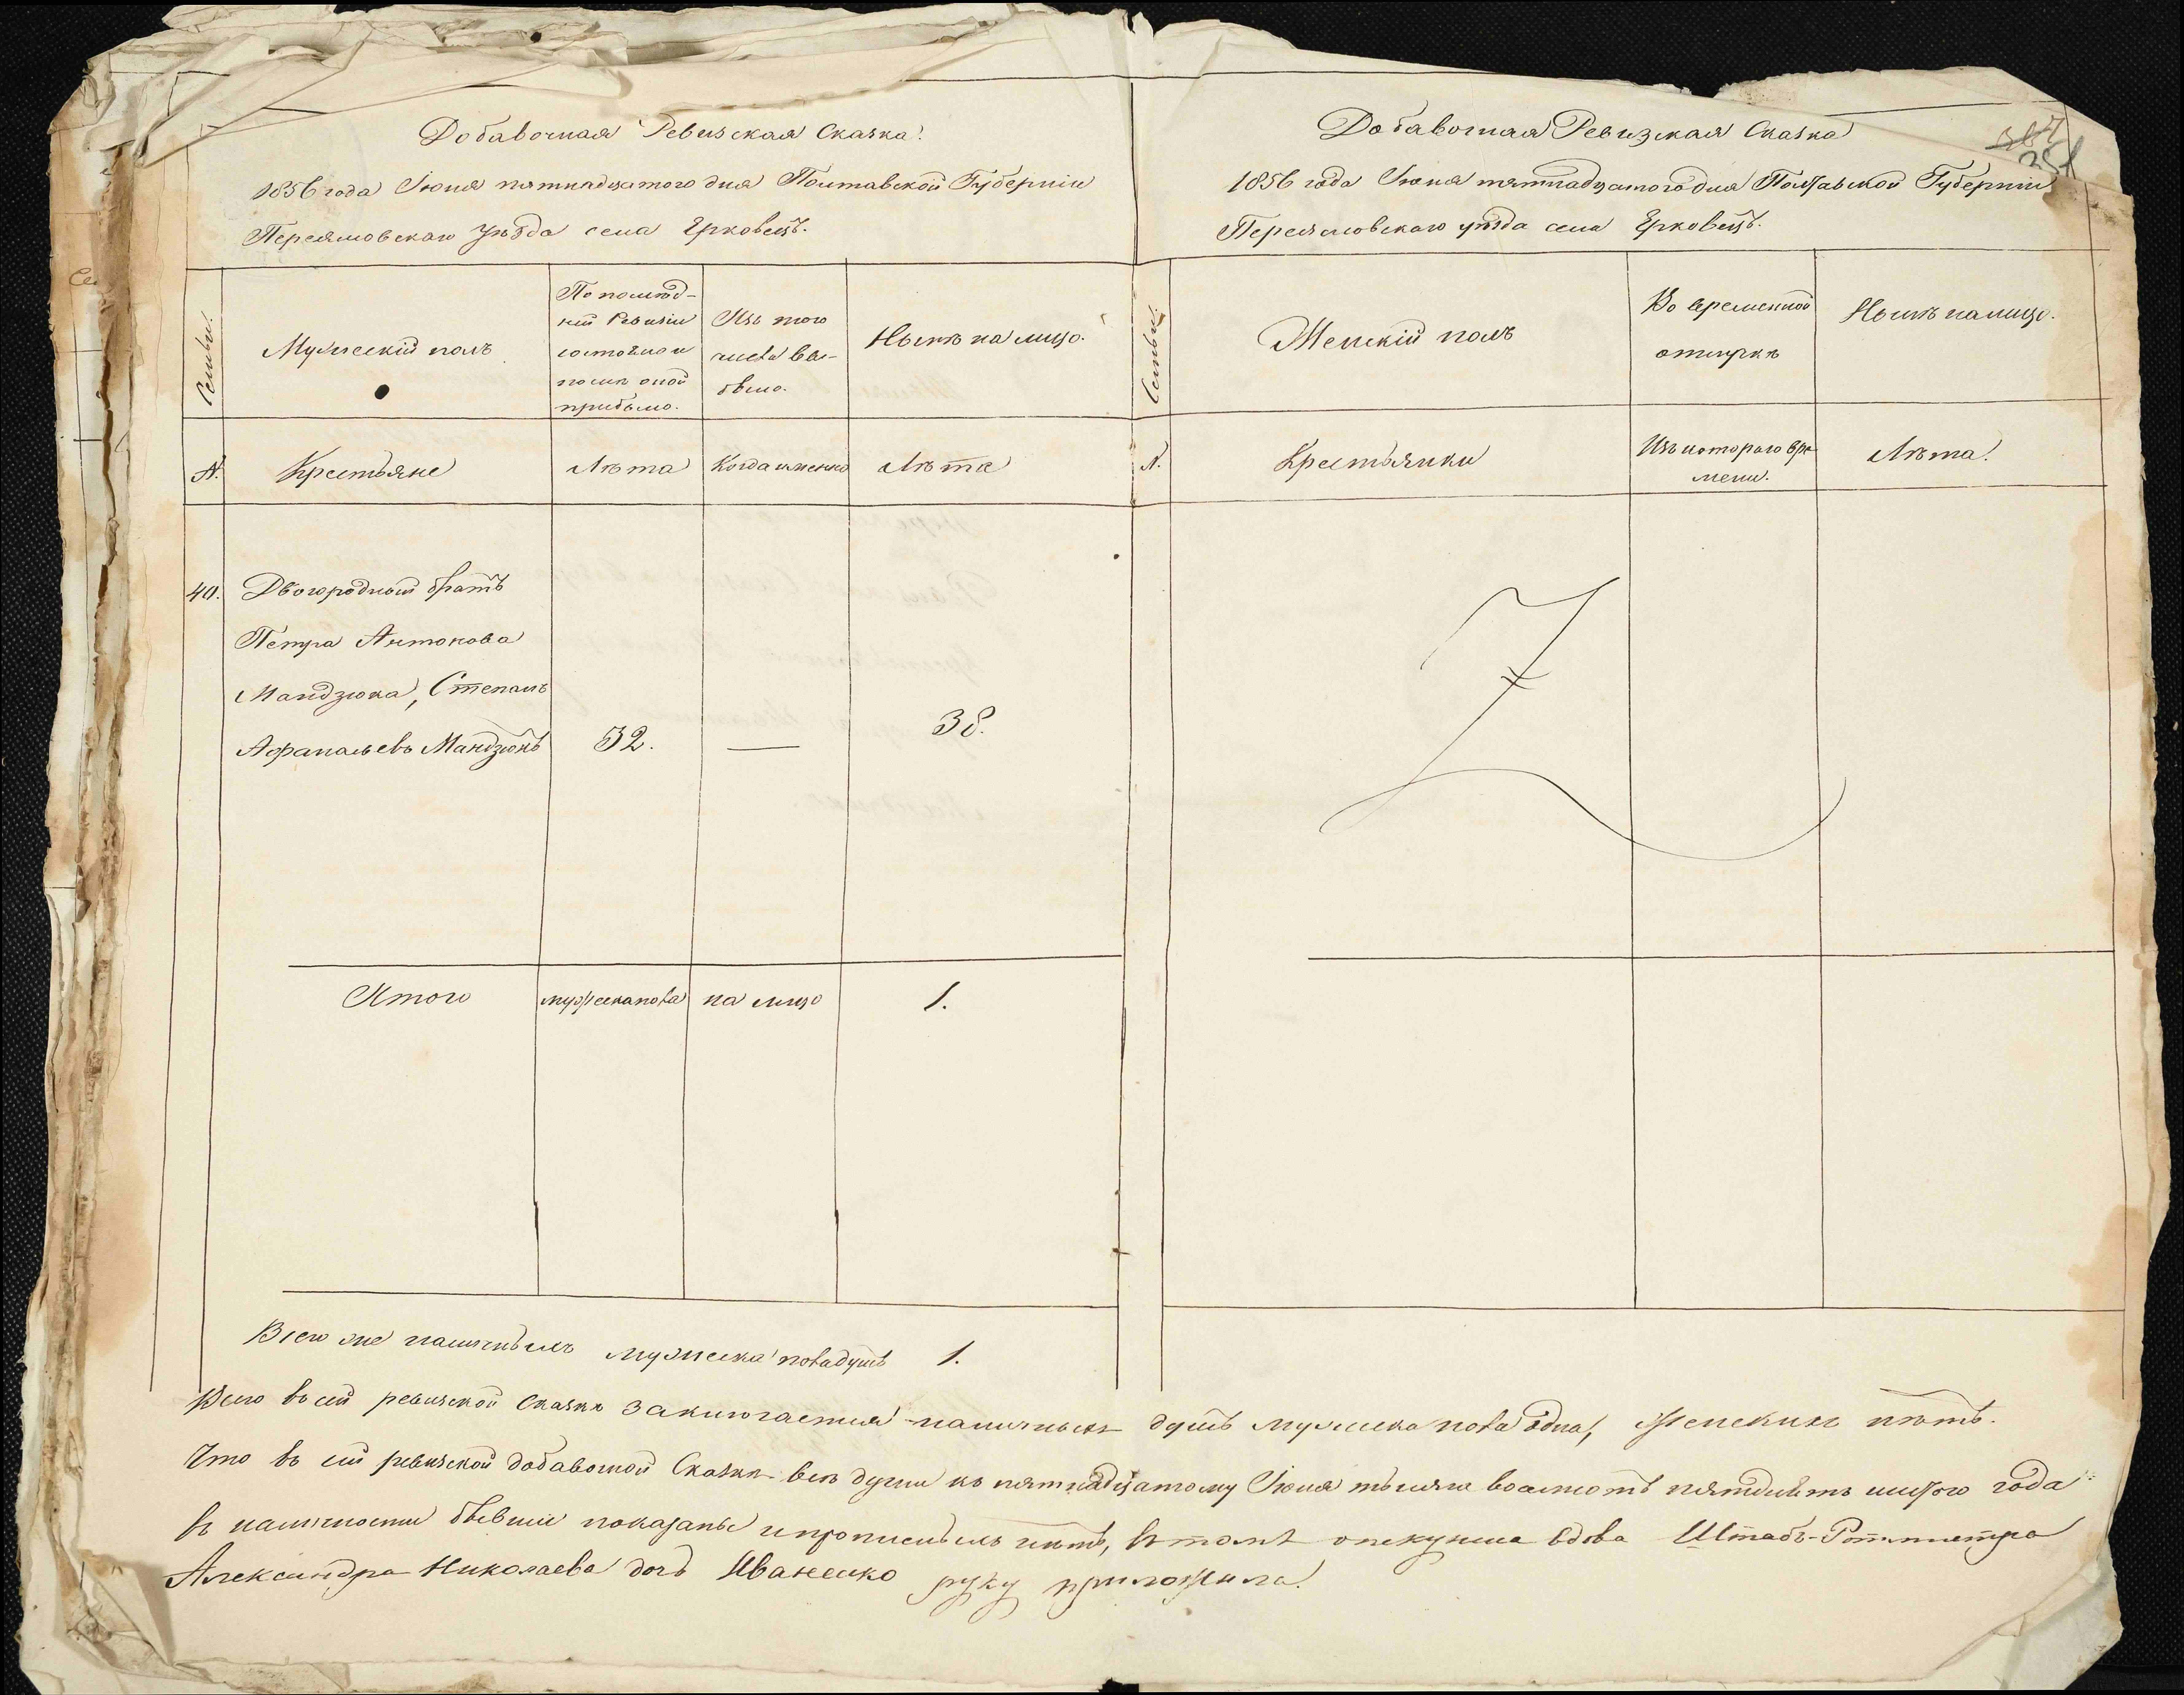 Добавочная Ревизская Сказка
1856 года Іюня пятнадцатого дня Полтавской Губерніи
Переяловскаго Уѣзда села Ерковецъ.
Семьи.
Мужескій полъ
По послѣд-
ней Ревизіи
состояло и
послѣ оной
прибыло.
Изъ того
числа вы-
было.
Нынѣ на лицо.
N.
Крестьяне
Лѣта
Когда именно
Лѣта
40.
Двоюродный братъ
Петра Антонова
Мандзюка, Степанъ
Афанасьевъ Мандзюкъ
32.
—
38.
Итого
мужеска пола
на лицо
1.
Всего же наличныхъ мужеска пола душъ 1.
Добавочная Ревизская Сказка
1856 года Іюня пятнадцатого дня Полтавской Губерніи
Переяловскаго уѣзда села Ерковецъ.
Семьи.
Женскій полъ
Во временной
отлучкѣ
Нынѣ налицо.
N.
Крестьянки
Изъ котораго вре-
мени.
Лѣта.
Всего въ сей ревизской Сказкѣ заключается наличныхъ душъ мужеска пола одна, женскихъ нѣтъ.
Что въ сей ревизской добавочной Сказкѣ всѣ души къ пятнадцатому Іюня тысяча восемсотъ пятдесятъ шестого года
въ наличности бывшіе показаны и прописныхъ нѣтъ, въ томъ опекунша вдова Штабъ-Ротмистра
Александра Николаева дочь Иваненко руку приложила.